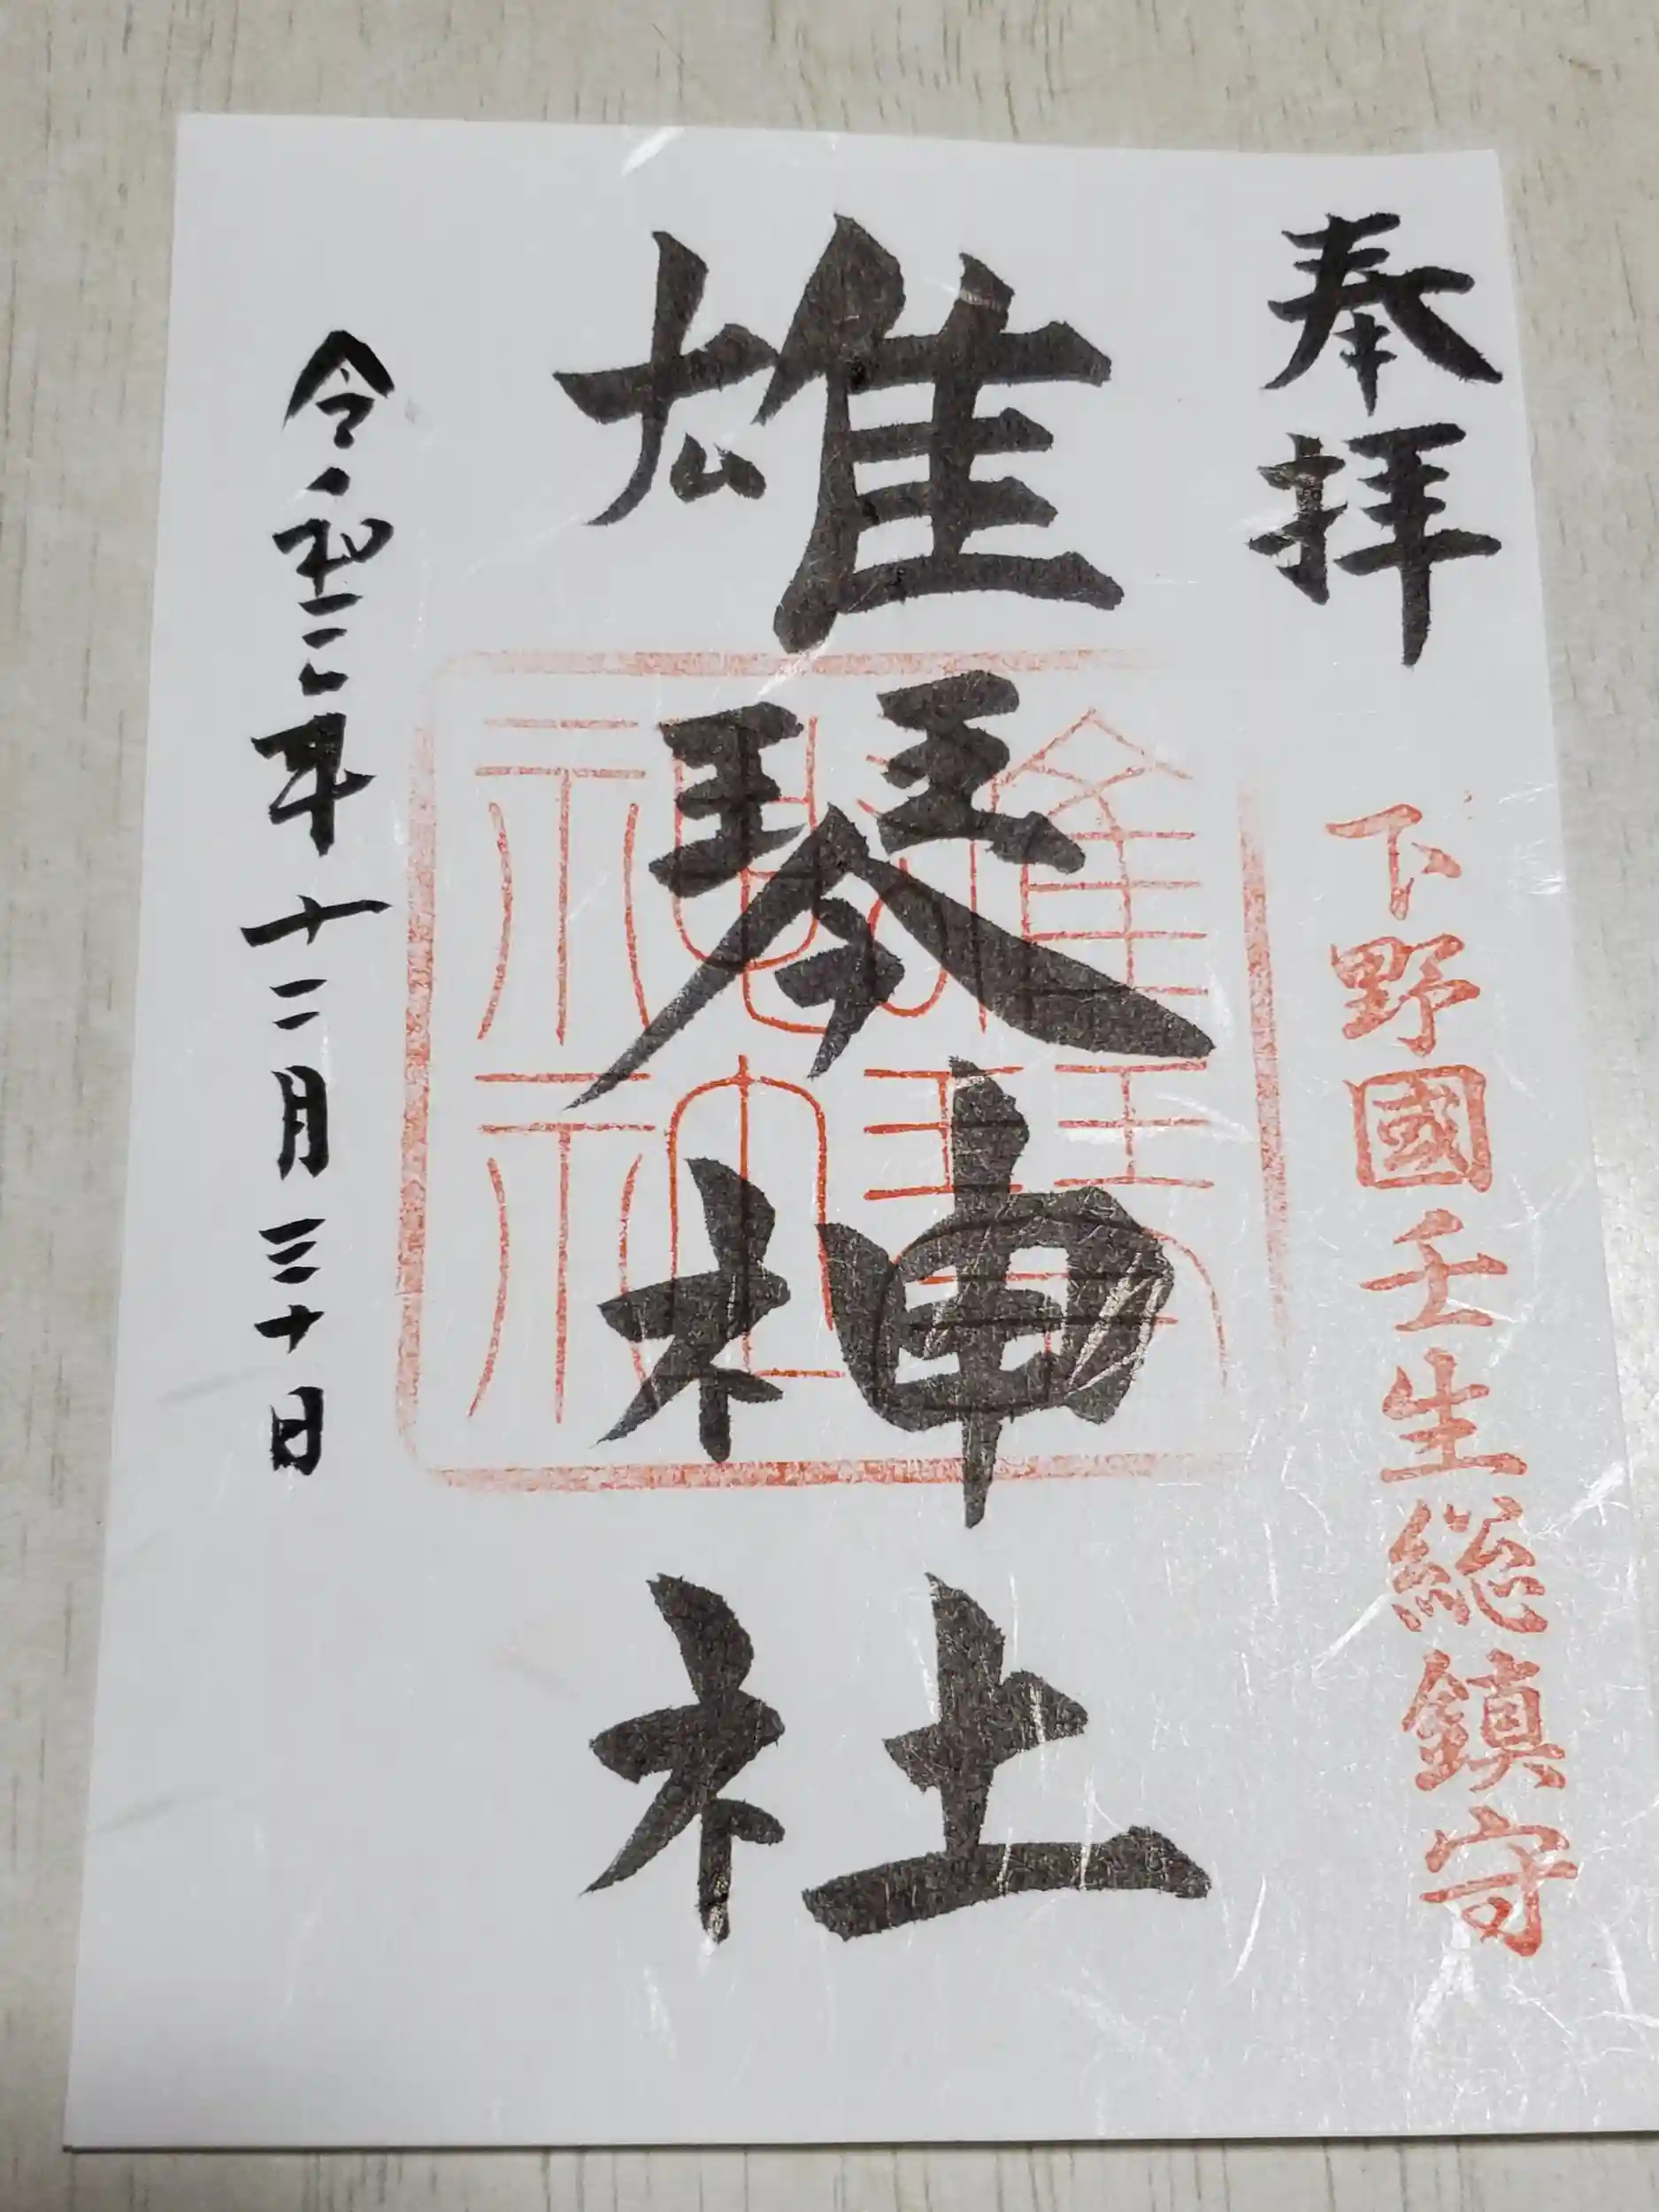 奉拝
下野國壬生総鎮守
雄琴神社
雄琴神社
令和三年十二月三十日